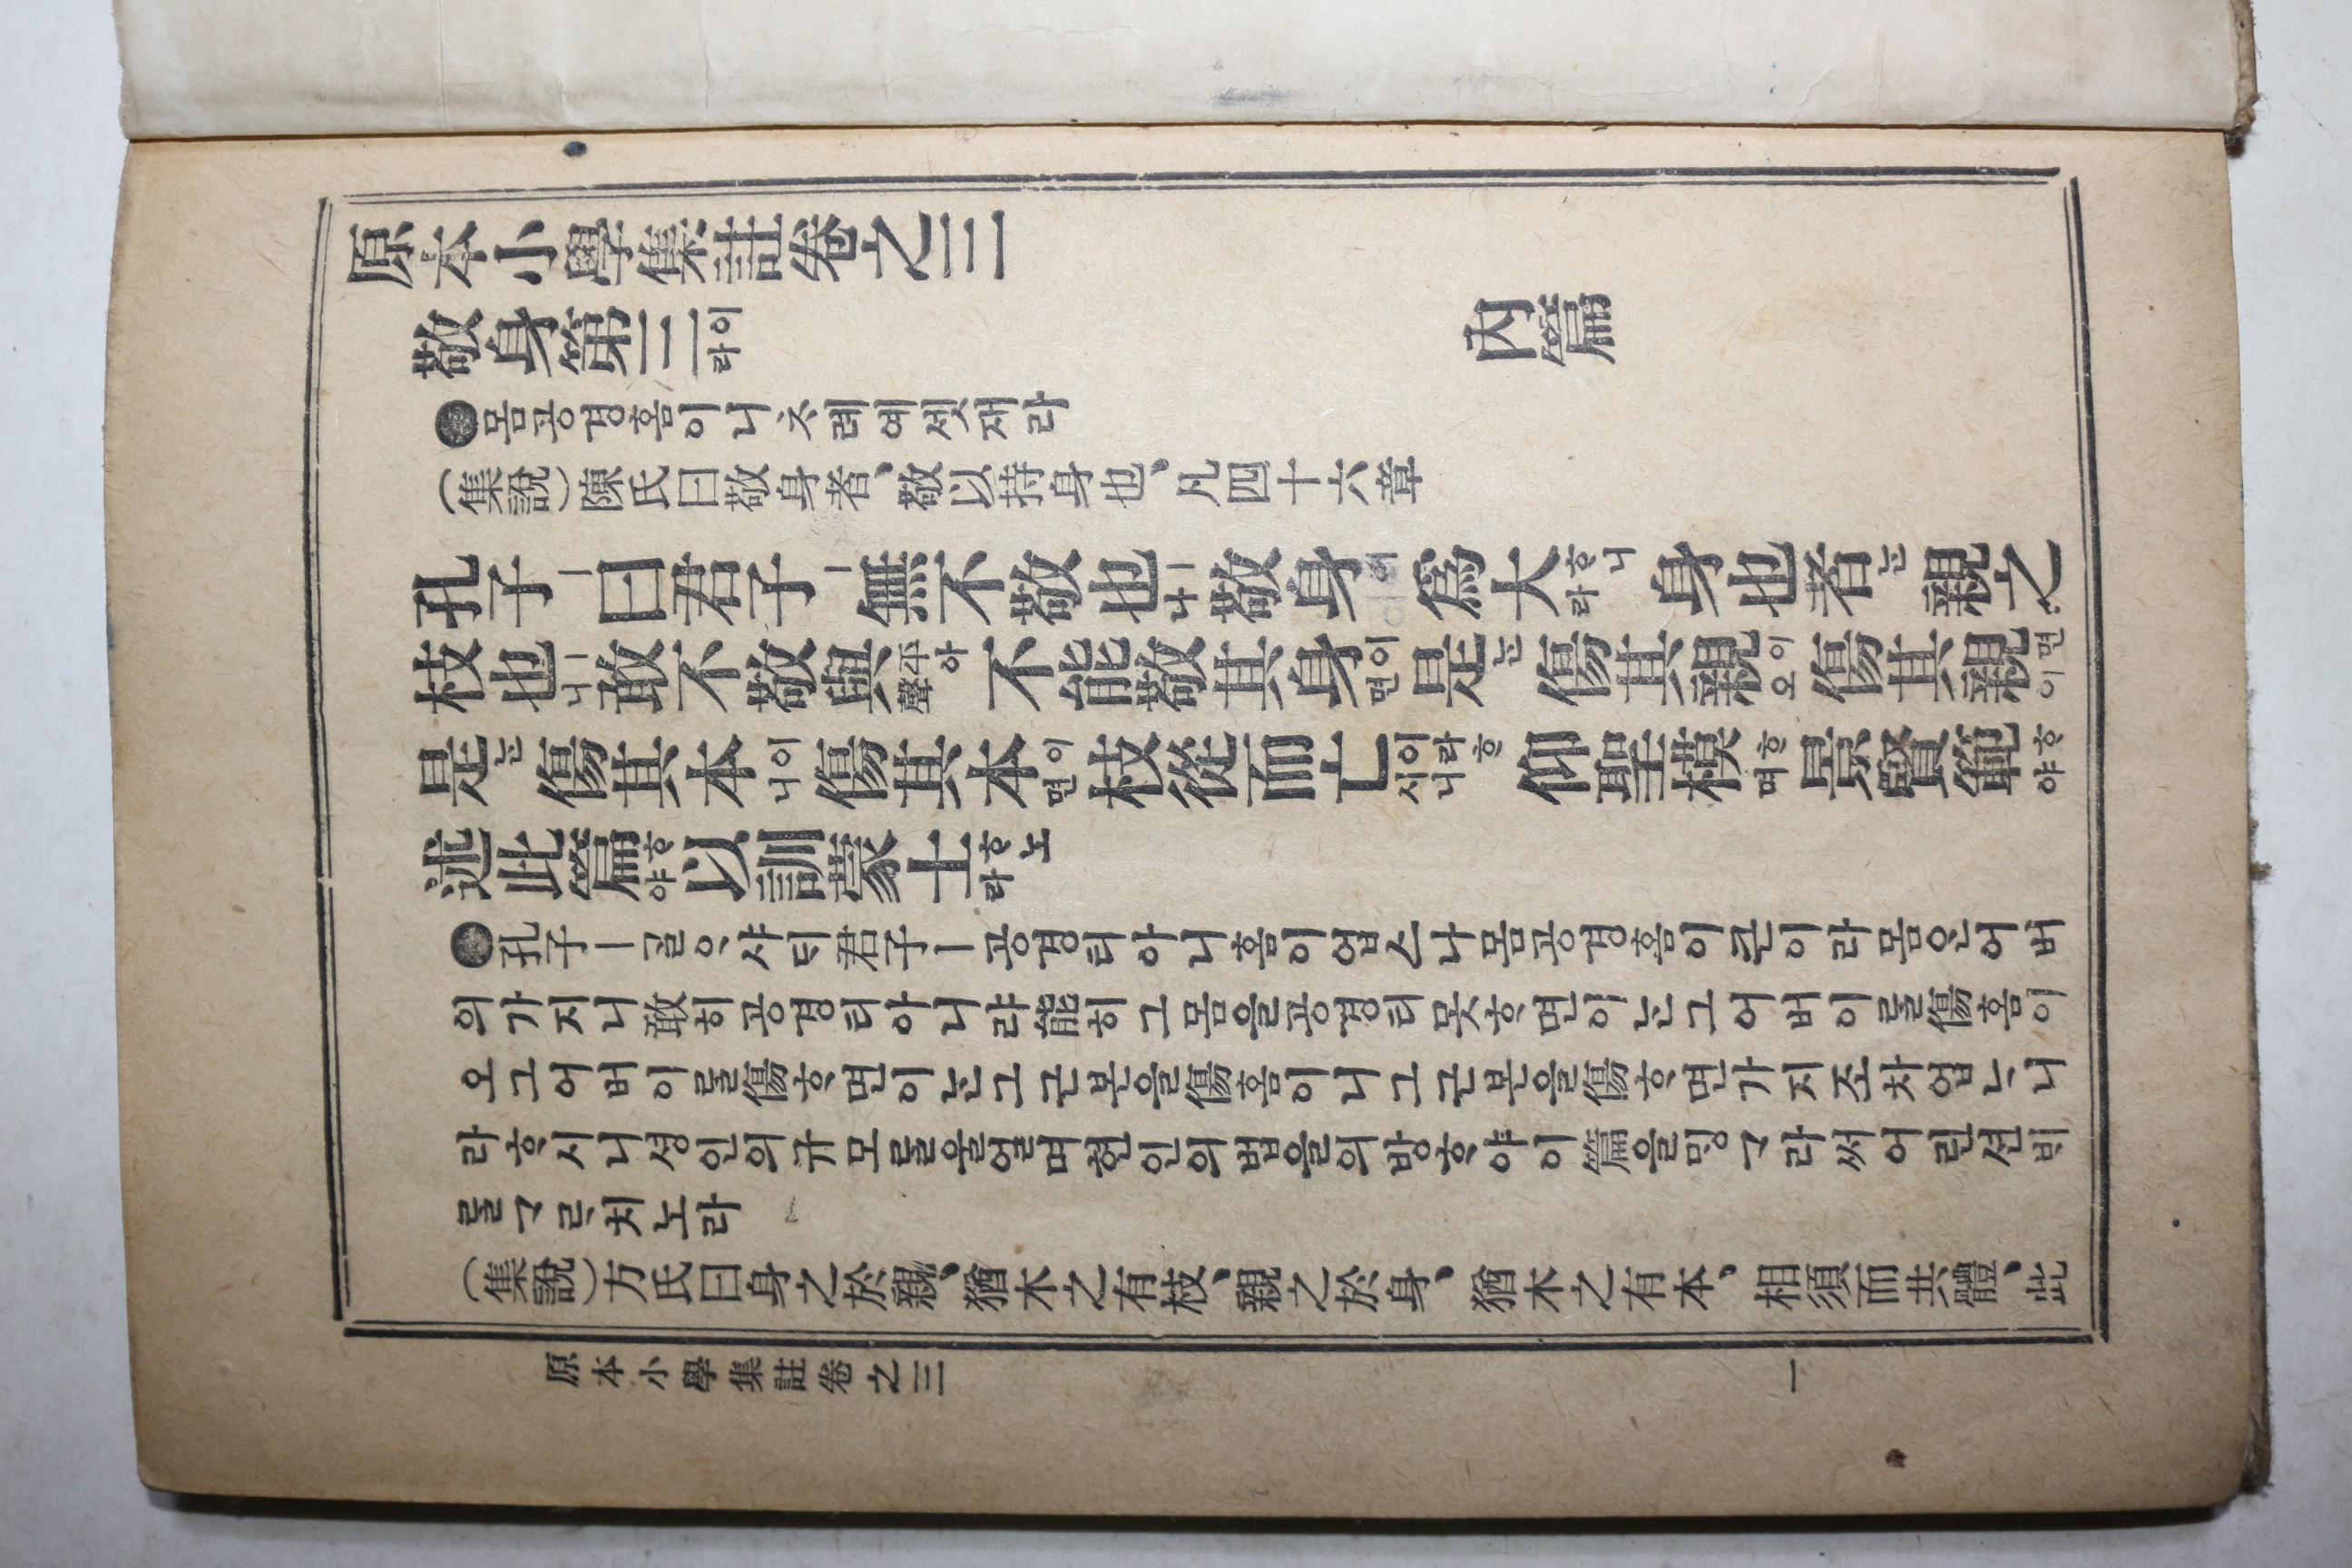 原本小學集註卷之三
敬身第三이라 內篇
●몸공경홈이니ᄎᆞ례예셋재라
(集說)陳氏曰敬身者、敬以持身也、凡四十六章
孔子ㅣ曰君子ㅣ無不敬也ㅣ나敬身이爲大ᄒᆞ니라身也者ᄂᆞᆫ親之
枝也ㅣ니敢不敬與平聲아不能敬其身이면是ᄂᆞᆫ傷其親이오傷其親이면
是ᄂᆞᆫ傷其本이니傷其本이면枝從而亡이라ᄒᆞ시니仰聖模ᄒᆞ며景賢範ᄒᆞ야
述此篇ᄒᆞ야以訓蒙士ᄒᆞ노라
●孔子ㅣᄀᆞᆯᄋᆞ샤ᄃᆡ君子ㅣ공경티아니홈이업스나몸공경홈이큰이라몸은어버
의가지니敢히공경티아니랴能히그몸을공경티못ᄒᆞ면이ᄂᆞᆫ그어버이ᄅᆞᆯ傷홈이
오그어버이ᄅᆞᆯ傷ᄒᆞ면이ᄂᆞᆫ그근본을傷홈이니그근본을傷ᄒᆞ면가지조차업ᄂᆞ니
라ᄒᆞ시니셩인의규모ᄅᆞᆯ울얼며현인의법을의방ᄒᆞ야이篇을ᄆᆡᆼᄀᆞ라써어린션ᄇᆡ
ᄅᆞᆯᄀᆞᄅᆞ치노라
(集說)方氏曰身之於親、猶木之有枝、親之於身、猶木之有本、相須而共體、此
原本小學集註卷之三 一